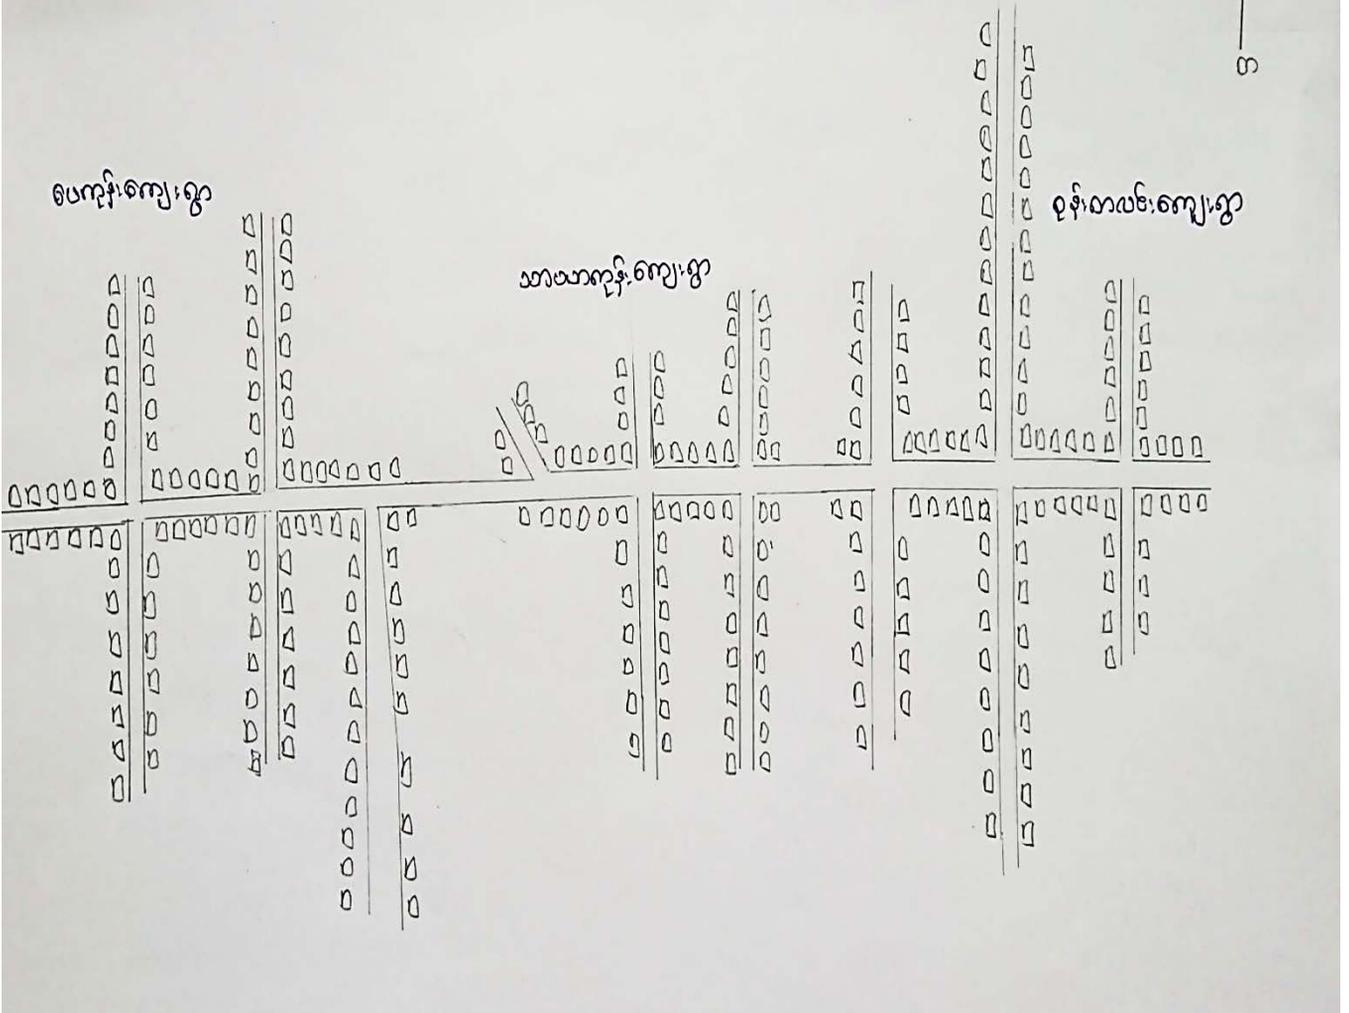 ပေကုန်းကျေးရွာ
သာယာကုန်းကျေးရွာ
စွန်းတလင်းကျေးရွာ
တ